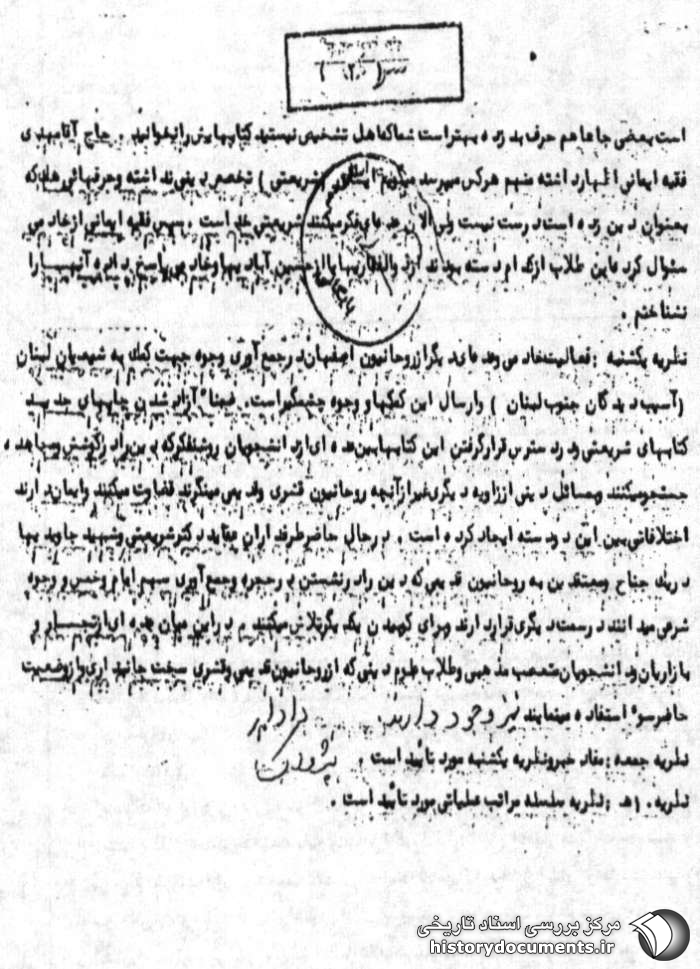 است بعضی جاها هم حرف بد زده بهتر است شما که اهل تشخیص نیستید کتابهایش را نخوانید . حاج آقا مهدی
فقیه ایمانی اظهار داشته منهم هرکس میرسد میگویم ایشان (شریعتی ) تخصص دینی نداشته و حرفهائی هم که
بعنوان دین زده است درست نیست ولی الان عده‌ای فکر میکنند شریعتی خدا است . سپس فقیه ایمانی از خادمی
سئوال کرد این طلاب از کدام دسته بودند از والفقاریها یا از حسین آباد یها و خادمی پاسخ داده آنهـا را
نشناختم .
نظریه یکشنبه : فعالیت خادمی و عده‌ای دیگر از روحانیون اصفهان در جمع آوری وجوه جهت کمک به شیعیان لبنان
(آسیب دیدگان جنوب لبنان ) و ارسال این کمکها و وجوه چشمگیر است. ضمناً آزاد شدن چاپهای جدید
کتابهای شریعتی و در دسترس قرار گرفتن این کتابها بین عده ای از دانشجویان روشنفکر که دین را در
جستجو میکنند و مسائل دینی از زاویه دیگری غیر از آنچه روحانیون قشری و قدیمی مینگرند قضاوت میکنند و ایمان دارند
اختلافاتی بین این دو دسته ایجاد کرده است . در حال حاضر طرفداران عقاید دکتر شریعتی و شهید جاوید یها
در یک جناح و معتقدین به روحانیون قدیمی که دین را در نشستن در حجره و جمع آوری سهم امام و خمس و وجوه
شرعی میدانند در سمت دیگری قرار دارند و برای کوبیدن یکدیگر تلاش میکنند . در این میان عده ای از تجـار و
بازاریان و دانشجویان متعصب مذهبی و طلاب علوم دینی که از روحانیون قدیمی و قشری سخت جانبداری و از وضعیت
حاضر سوء استفاده مینمایند نیز وجود دارند.
نظریه جمعه : مفاد خبر و نظریه یکشنبه مورد تائید است .
نظریه ۱۰هـ : نظریه سلسله مراتب عملیاتی مورد تائید است .
مرکز بررسی اسناد تاریخی
historydocuments.ir